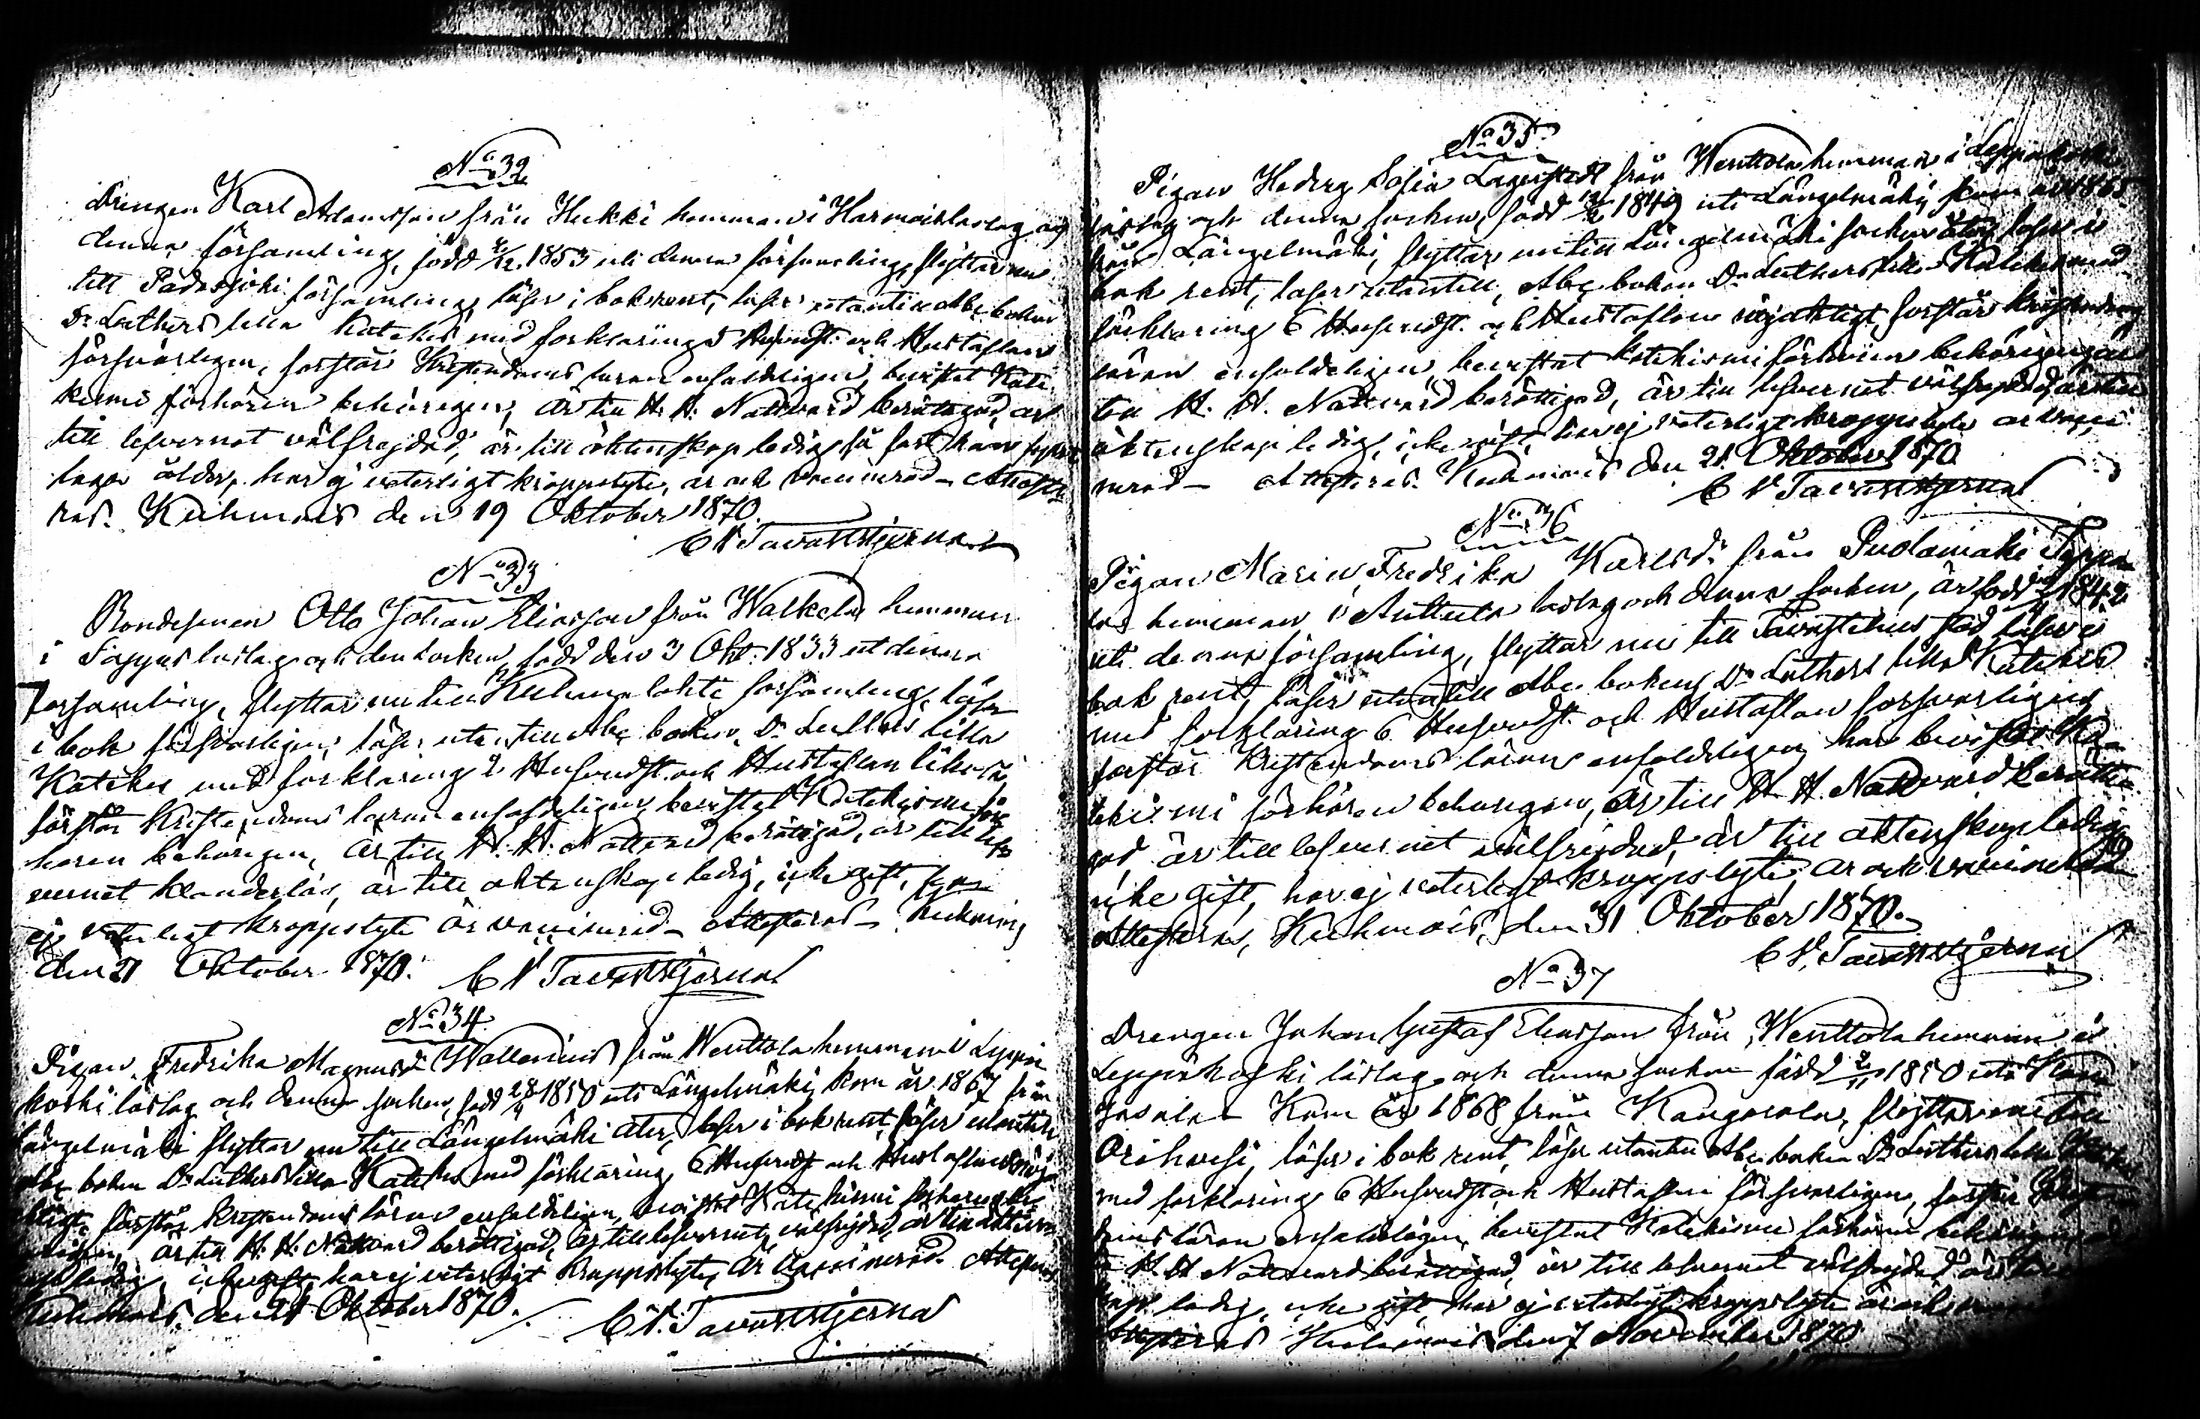 No 32
Drengen Karl Adamsson från Hukki hemman i Harmois laslag och
denna församling, född 1853 uti denna församling, flyttar nu
till Padasjoki församling, läser i bok rent, läser utantill Abc boken
Dr Luthers lilla Katekes med förklaringar Husvudst. och Hustaflan
försvarligen, förstår Kristendoms läran enfaldeligen, bevistat Kate
kismi förhören behörigen, är till H. H. Nattvard berättigad, är
till lefvernet välfrejdad, är till äktenskap ledig, så fast han
laga ålder, har ej veterligt kroppslyte, är ock vaccinerad – Atteste
ras. Kuhmois den 19 Oktober 1870.
C V Tavaststjerna
No 33
Bondesonen Otto Johan Eliasson från Walkela hemman
i Tappus laslag och den socken, född den 3 Okt. 1833 ut denna
församling, flyttar nu till Kuhmalahti församling, läser
i bok försvarligen, läser utantill Abc boken, Dr Luthers lilla
Katekes med förklaring Husvudst. och Hustaflan likaså
förstår Kristendoms läran enfaldeligen bevistat Katekismi för
hören behörigen, är till H. H. Nattvard berättigad, är till lef
vernet klanderlös, är till äktenskap ledig, icke gift, har
ej veterligt kroppslyte är vaccinerad – Attesteras – Kuhmois
den 21 Oktober 1870. C V Tavaststjerna
No 34
Pigan Fredrika Magnusdr Wallenius från Wenttola hemman i Leppä
koski laslag och denna socken, född 28/4 1850 uti Längelmäki, kom år 1867 från
Längelmäki flyttar nu till Längelmäki åter, läser i bok rent, läser utantill
Abc boken Dr Luthers lilla Katekes med förklaring, 6 Husvudst och Hustaflan nöja
ktigt, förstår Kristendoms läran enfaldeligen, bevistat Katekismi förhören be
hörigen, är till H. H. Nattvard berättigad, är till lefvernet välfrejdad, är till äkten
skap ledig, icke gift, har ej veterligt kroppslyte, är vaccinerad. Attesteras
Kuhmois den 21 Oktober 1870. C V. Tavaststjerna
No 35
Pigan Hedvig Sofia Lagerstedt från Wenttola hemman i Leppäkoski
laslag och denna socken, född 1849 uti Längelmäki, kom år 1865
från Längelmäki, flyttar nu till Längelmäki socken åter, läser i
bok rent, läser utantill, Abc boken Dr Luthers lilla Katekes med
förklaring 6 Husvudst. och Hustaflan nöjaktigt, förstår kristendoms
läran enfaldeligen bevistat Katekismi förhören behörigen, är
till H. H. Nattvard berättigad, är till lefvernet välfrejdad, är till
äktenskap ledig, icke gift, har ej veterligt kroppslyte är vacci
nerad – Attesteras. Kuhmois den 21 Oktober 1870
C V Tavaststjerna
No 36
Pigan Maria Fredrika Karlsdr från Pudamäki
hemman i Anttula laslag och denna socken, är född 1842
uti denna församling, flyttar nu till Tavastehus stad, läser i
bok rent, läser utantill Abc boken, Dr Luthers lilla Katekes
med förklaring 6 Husvudst. och Hustaflan försvarligen
förstår Kristendoms läran enfaldeligen, har bevistat Ka
tekismi förhören behörigen, är till H. H. Nattvard berätti
gad, är till lefvernet välfrejdad, är till äktenskap ledig
icke gift, har ej veterligt kroppslyte, är ock vaccinerad
Attesteras, Kuhmois, den 31 Oktober 1870.
C V. Tavaststjerna
No 37
Drengen Johan Gustaf Eliasson från Wenttola hemman i
Leppäkoski laslag och denna socken född 1850 uti
Kom år 1868 från Kangasala, flyttar nu till
Orihvesi, läser i bok rent, läser utantill Abc boken Dr Luthers lilla Katekes
med förklaring 6 Husvudst och Hustaflan försvarligen, förstår Kristen
doms läran enfaldeligen, bevistat Katekismi förhören behörigen, är
till H. H Nattvard berättigad, är till lefvernet välfrejdad är till
skap ledig, icke gift har ej veterligt kroppslyte är ock
Attesteras Kuhmois den 7 November 1870